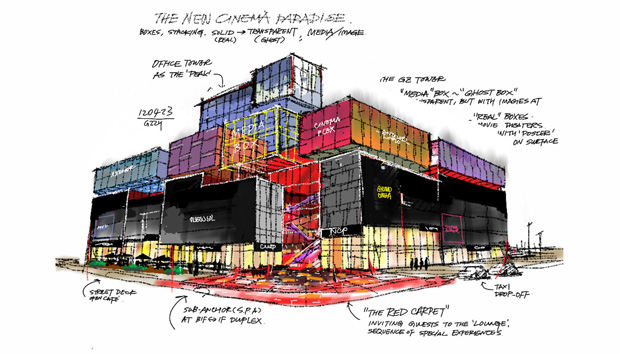 THE NEW CINEMA PARADISE.
BOXES, STACKING. SOLID → TRANSPARENT, MEDIA/IMAGE
(REAL) (GHOST)
OFFICE TOWER
AS THE 'PERK'
THE GZ TOWER
"MEDIA" BOX ~ "GHOST BOX"
PARENT, BUT WITH IMAGES AT
120423
GZZY
"REAL" BOXES
MOVIE THEATERS
WITH 'POSTER'
ON SURFACE
MEDIA
BOX
CINEMA
PLEX
SHOP
STREET DECK
OPEN CAFE
SUB-ANCHOR (S.P.A)
AT B1F IF DUPLEX
"THE RED CARPET"
INVITING GUESTS TO THE 'LOUNGE',
SEQUENCE OF SPECIAL EXPERIENCES
TAXI
DROP-OFF